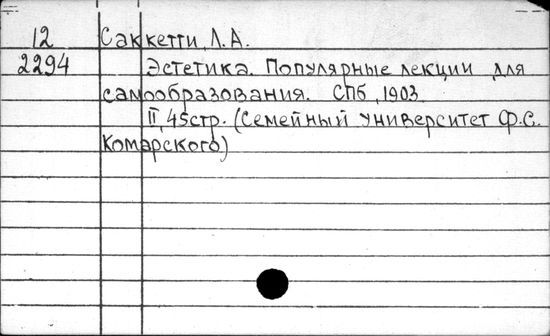 12 Саккетти, Л.А.
2294 Эстетика. Популярные лекции для
самообразования. СПб, 1903
II, 45стр. (Семейный университет Ф.С.
Комарского)